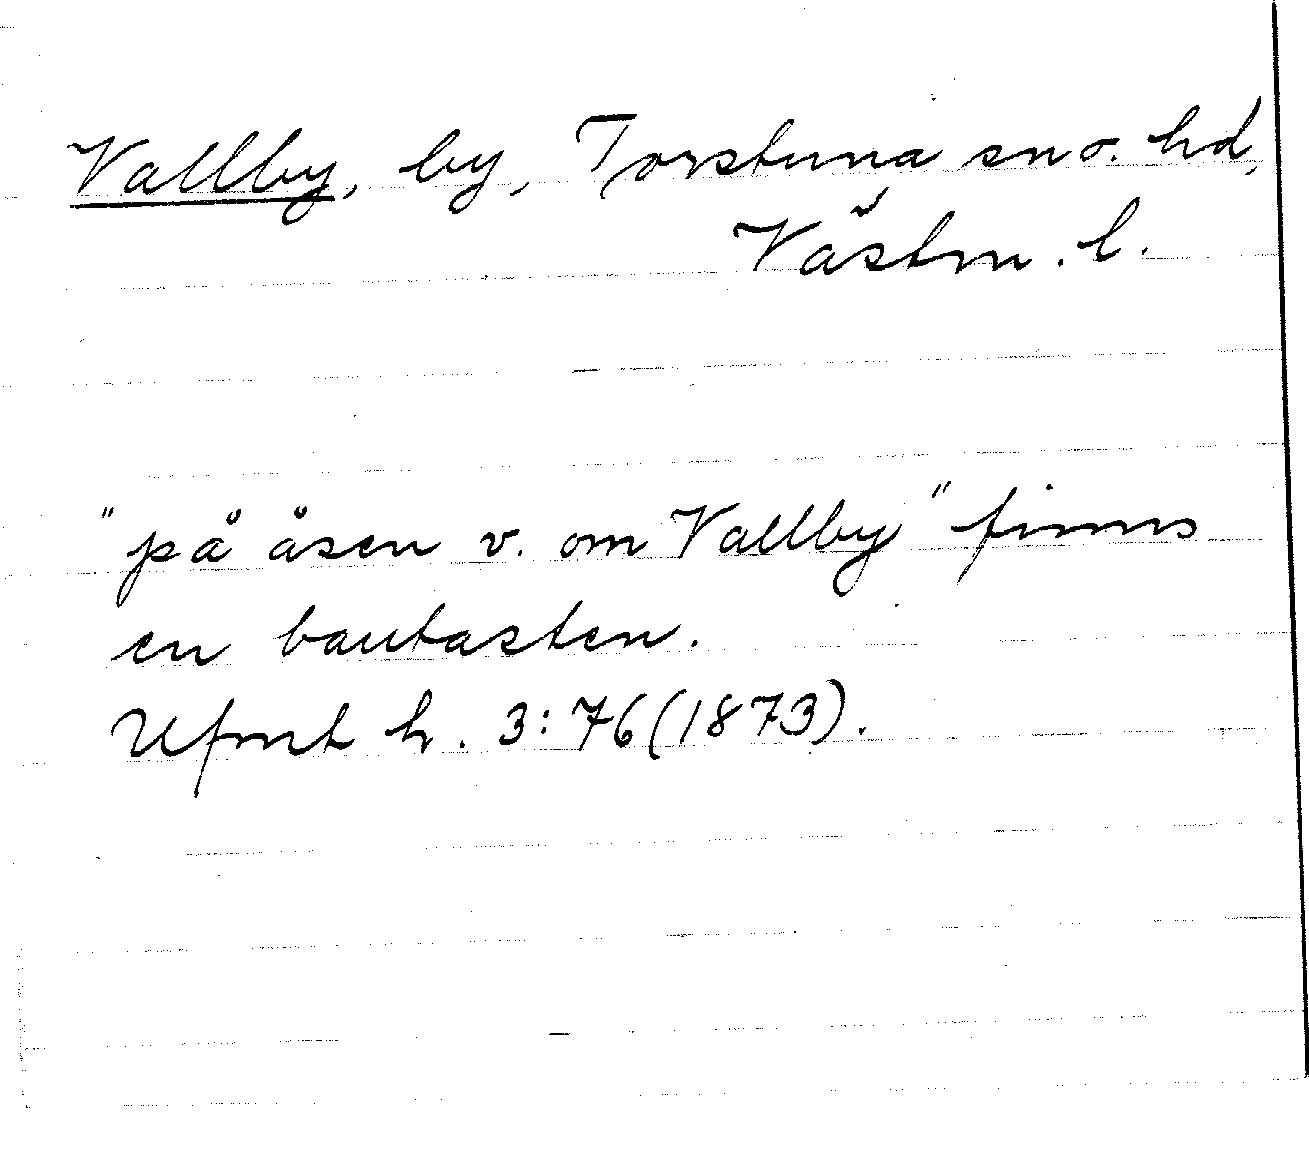 Vallby, by, Torstuna sn o. hd,
Västm. l.
"på åsen v. om Vallby" finns
en bautasten.
Ufmt h. 3:76(1873).